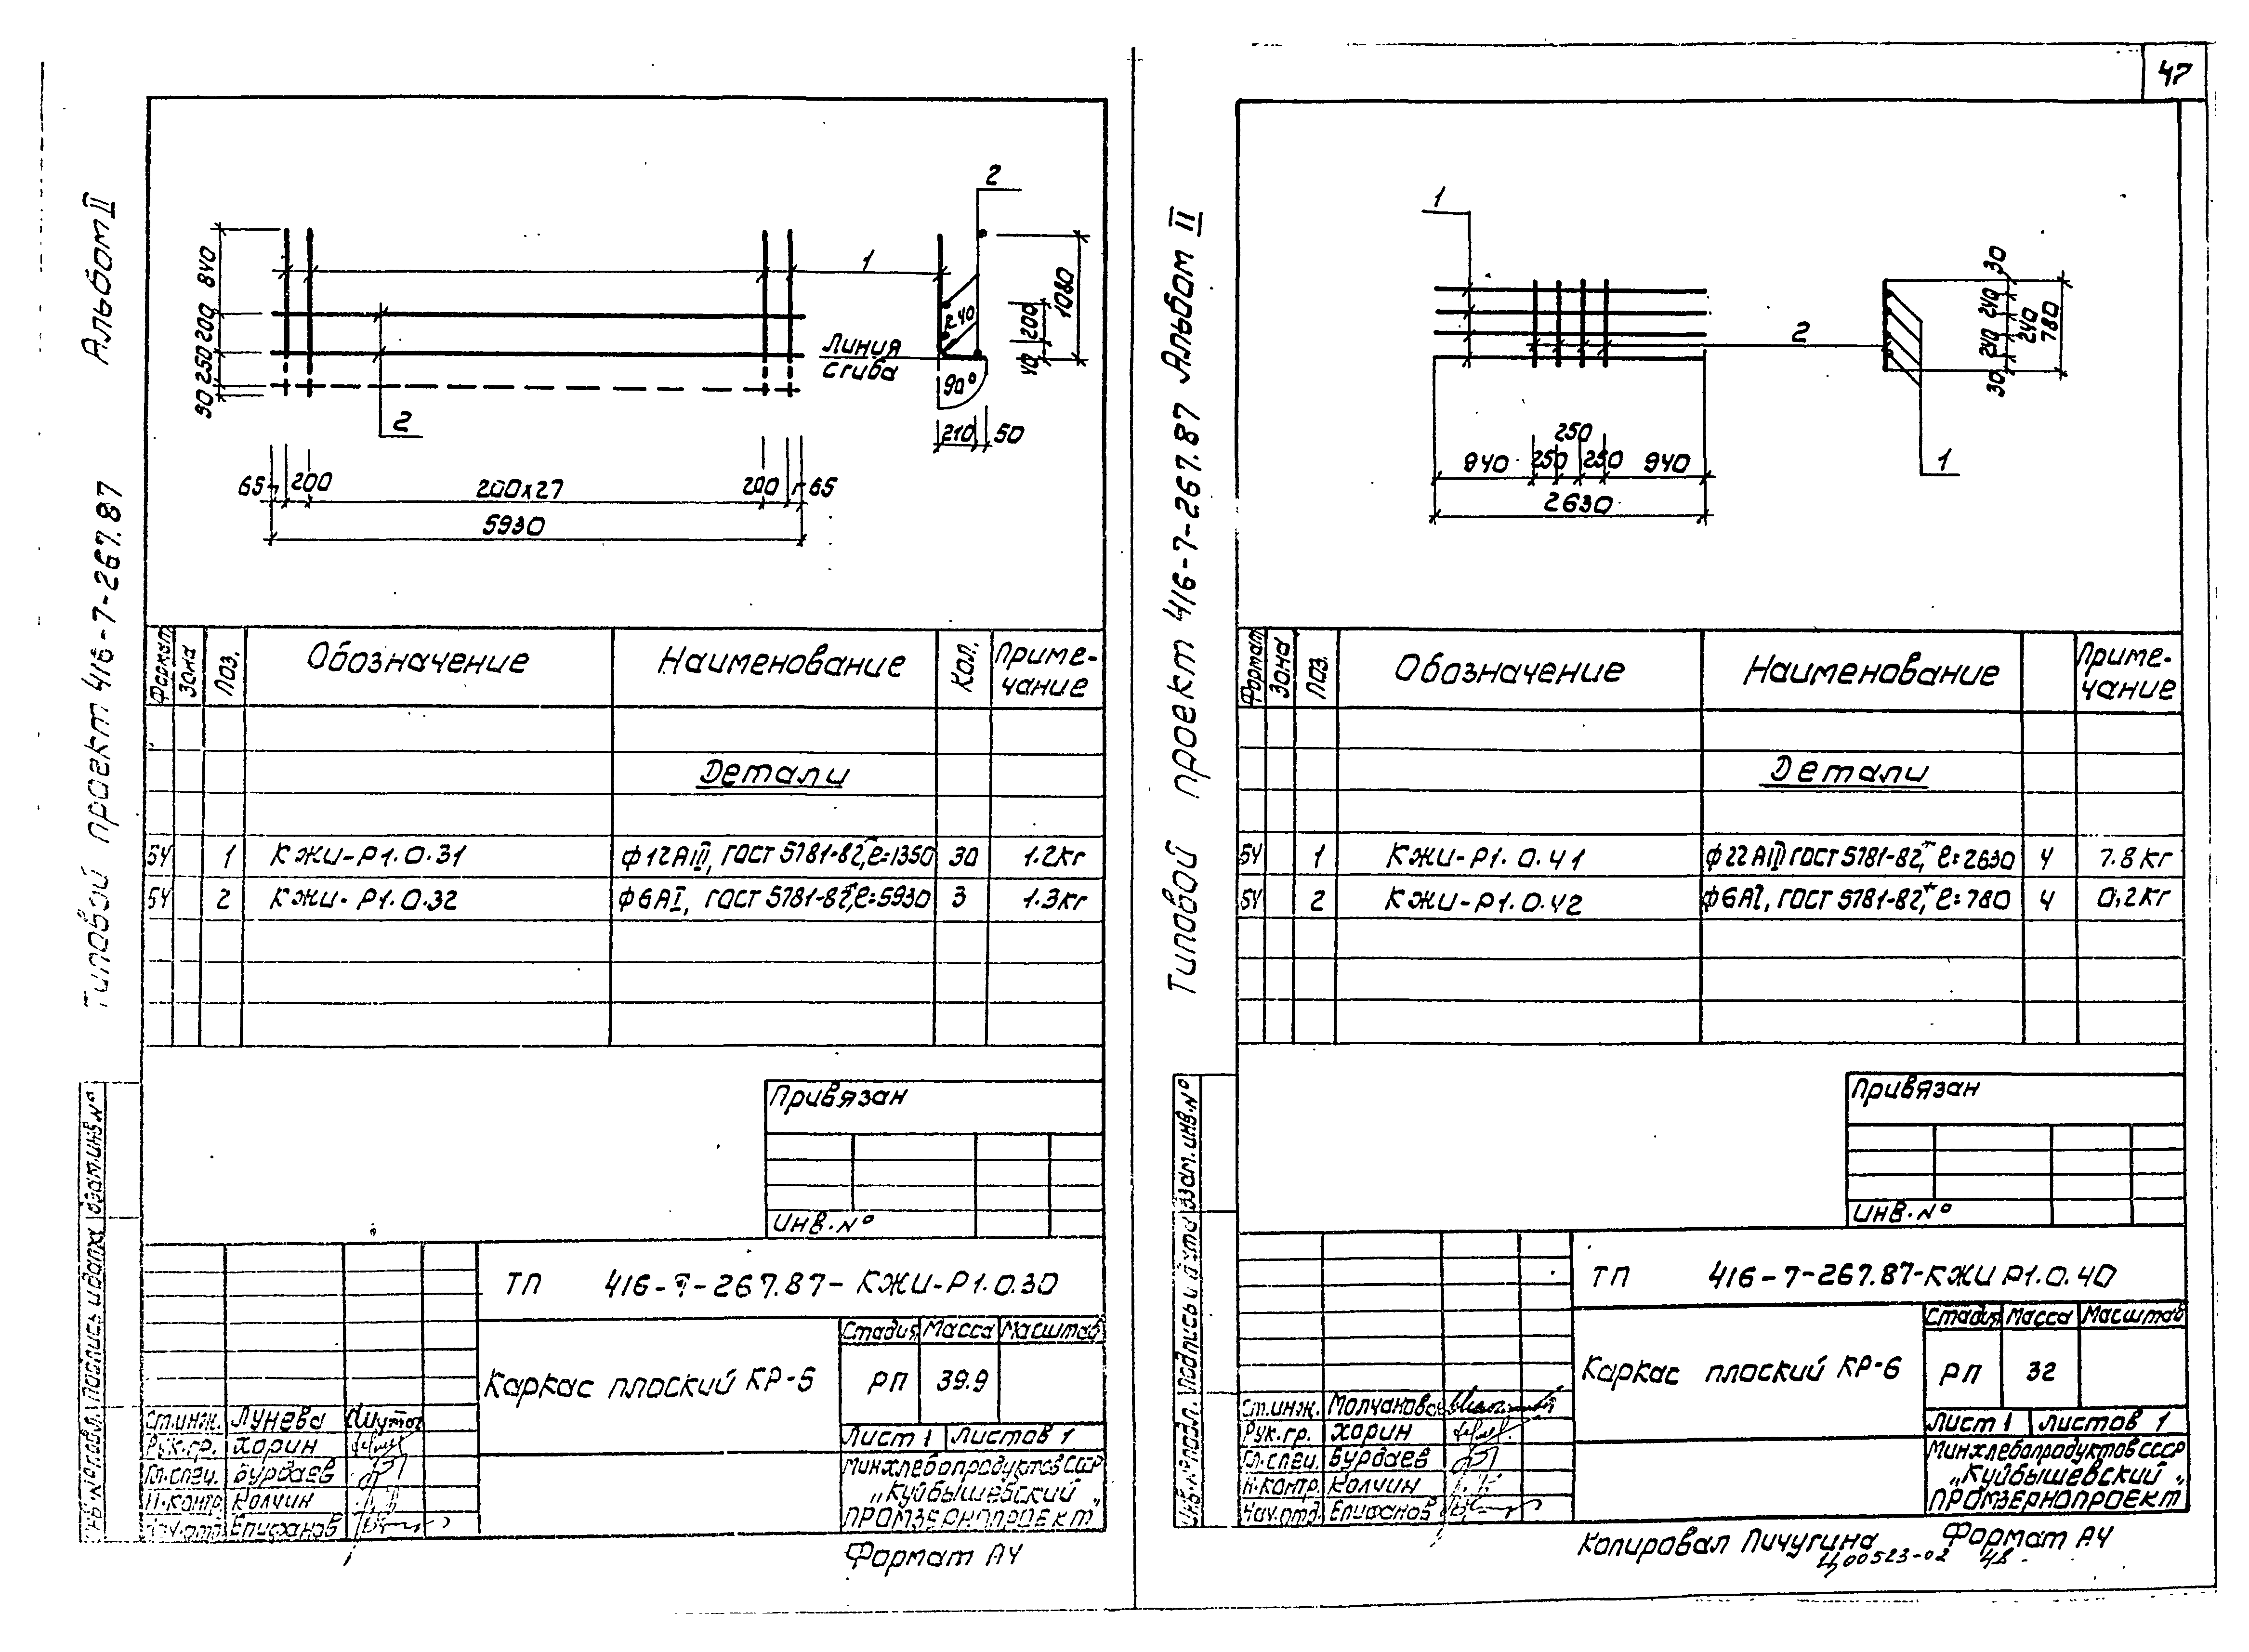 47
Альбом II
Типовой проект 416-7-267.87
2
1
840
200
250
50
R40
200
40
1080
Линия
сгиба
90°
2
210 50
65 200 200х27 200 65
5930
Формат Зона Поз. Обозначение Наименование Кол. Приме-
чание
Детали
БЧ 1 КЖИ-Р1.0.31 ф12АIII, ГОСТ 5781-82*, ℓ=1350 30 1.2кг
БЧ 2 КЖИ-Р1.0.32 ф6АI, ГОСТ 5781-82*, ℓ=5930 3 1.3кг
Привязан
Инв.№
ТП 416-7-267.87-КЖИ-Р1.0.30
Каркас плоский КР-5
Стадия Масса Масштаб
РП 39.9
Лист 1 Листов 1
Минхлебопродуктов СССР
„Куйбышевский"
ПРОМЗЕРНОПРОЕКТ
Ст.инж. Лунева
Рук.гр. Харин
Гл.спец. Бурдаев
Н.контр. Колчин
Нач.отд. Епифанов
Инв.№ подл. Подпись и дата Взам.инв.№
Формат А4
Типовой проект 416-7-267.87 Альбом II
1
2
1
30
240
240
240
30
780
250
940 250 250 940
2630
Формат Зона Поз. Обозначение Наименование Приме-
чание
Детали
БЧ 1 КЖИ-Р1.0.41 ф22АIII ГОСТ 5781-82*, ℓ=2630 4 7.8кг
БЧ 2 КЖИ-Р1.0.42 ф6АI, ГОСТ 5781-82*, ℓ=780 4 0,2кг
Привязан
Инв.№
ТП 416-7-267.87-КЖИ Р1.0.40
Каркас плоский КР-6
Стадия Масса Масштаб
РП 32
Лист 1 Листов 1
Минхлебопродуктов СССР
„Куйбышевский"
ПРОМЗЕРНОПРОЕКТ
Ст.инж. Молчанова
Рук.гр. Харин
Гл.спец. Бурдаев
Н.контр. Колчин
Нач.отд. Епифанов
Инв.№ подл. Подпись и дата Взам.инв.№
Копировал Пичугина Формат А4
Ц00523-02 48